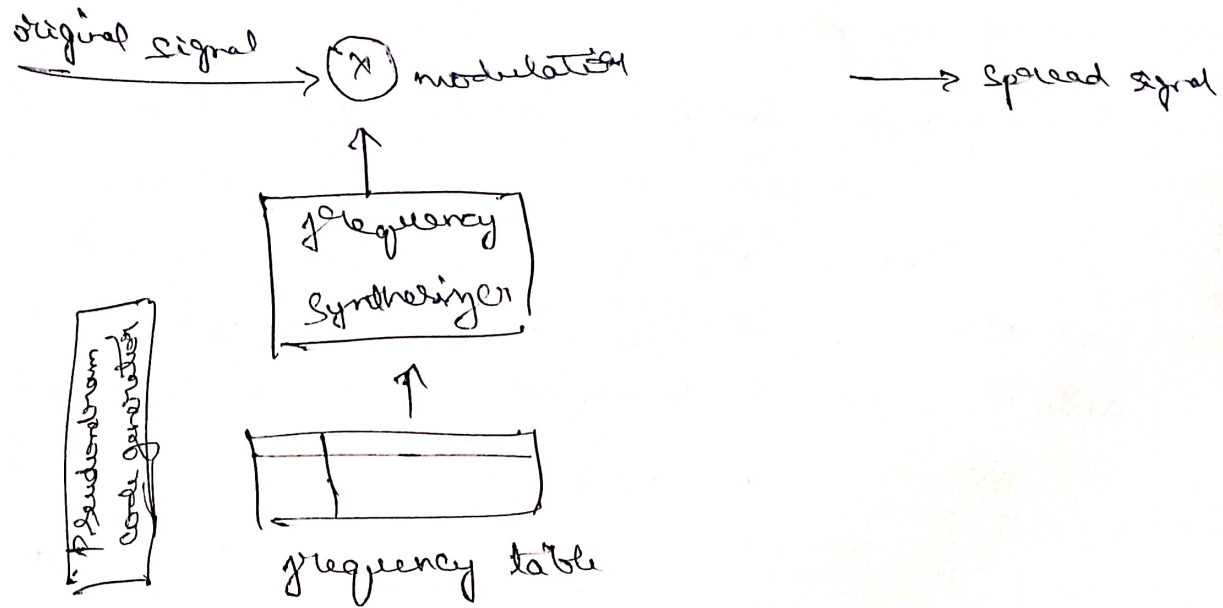 original signal
x
modulation
spread signal
frequency
synthesizer
Pseudordnam
code generatior
frequency table